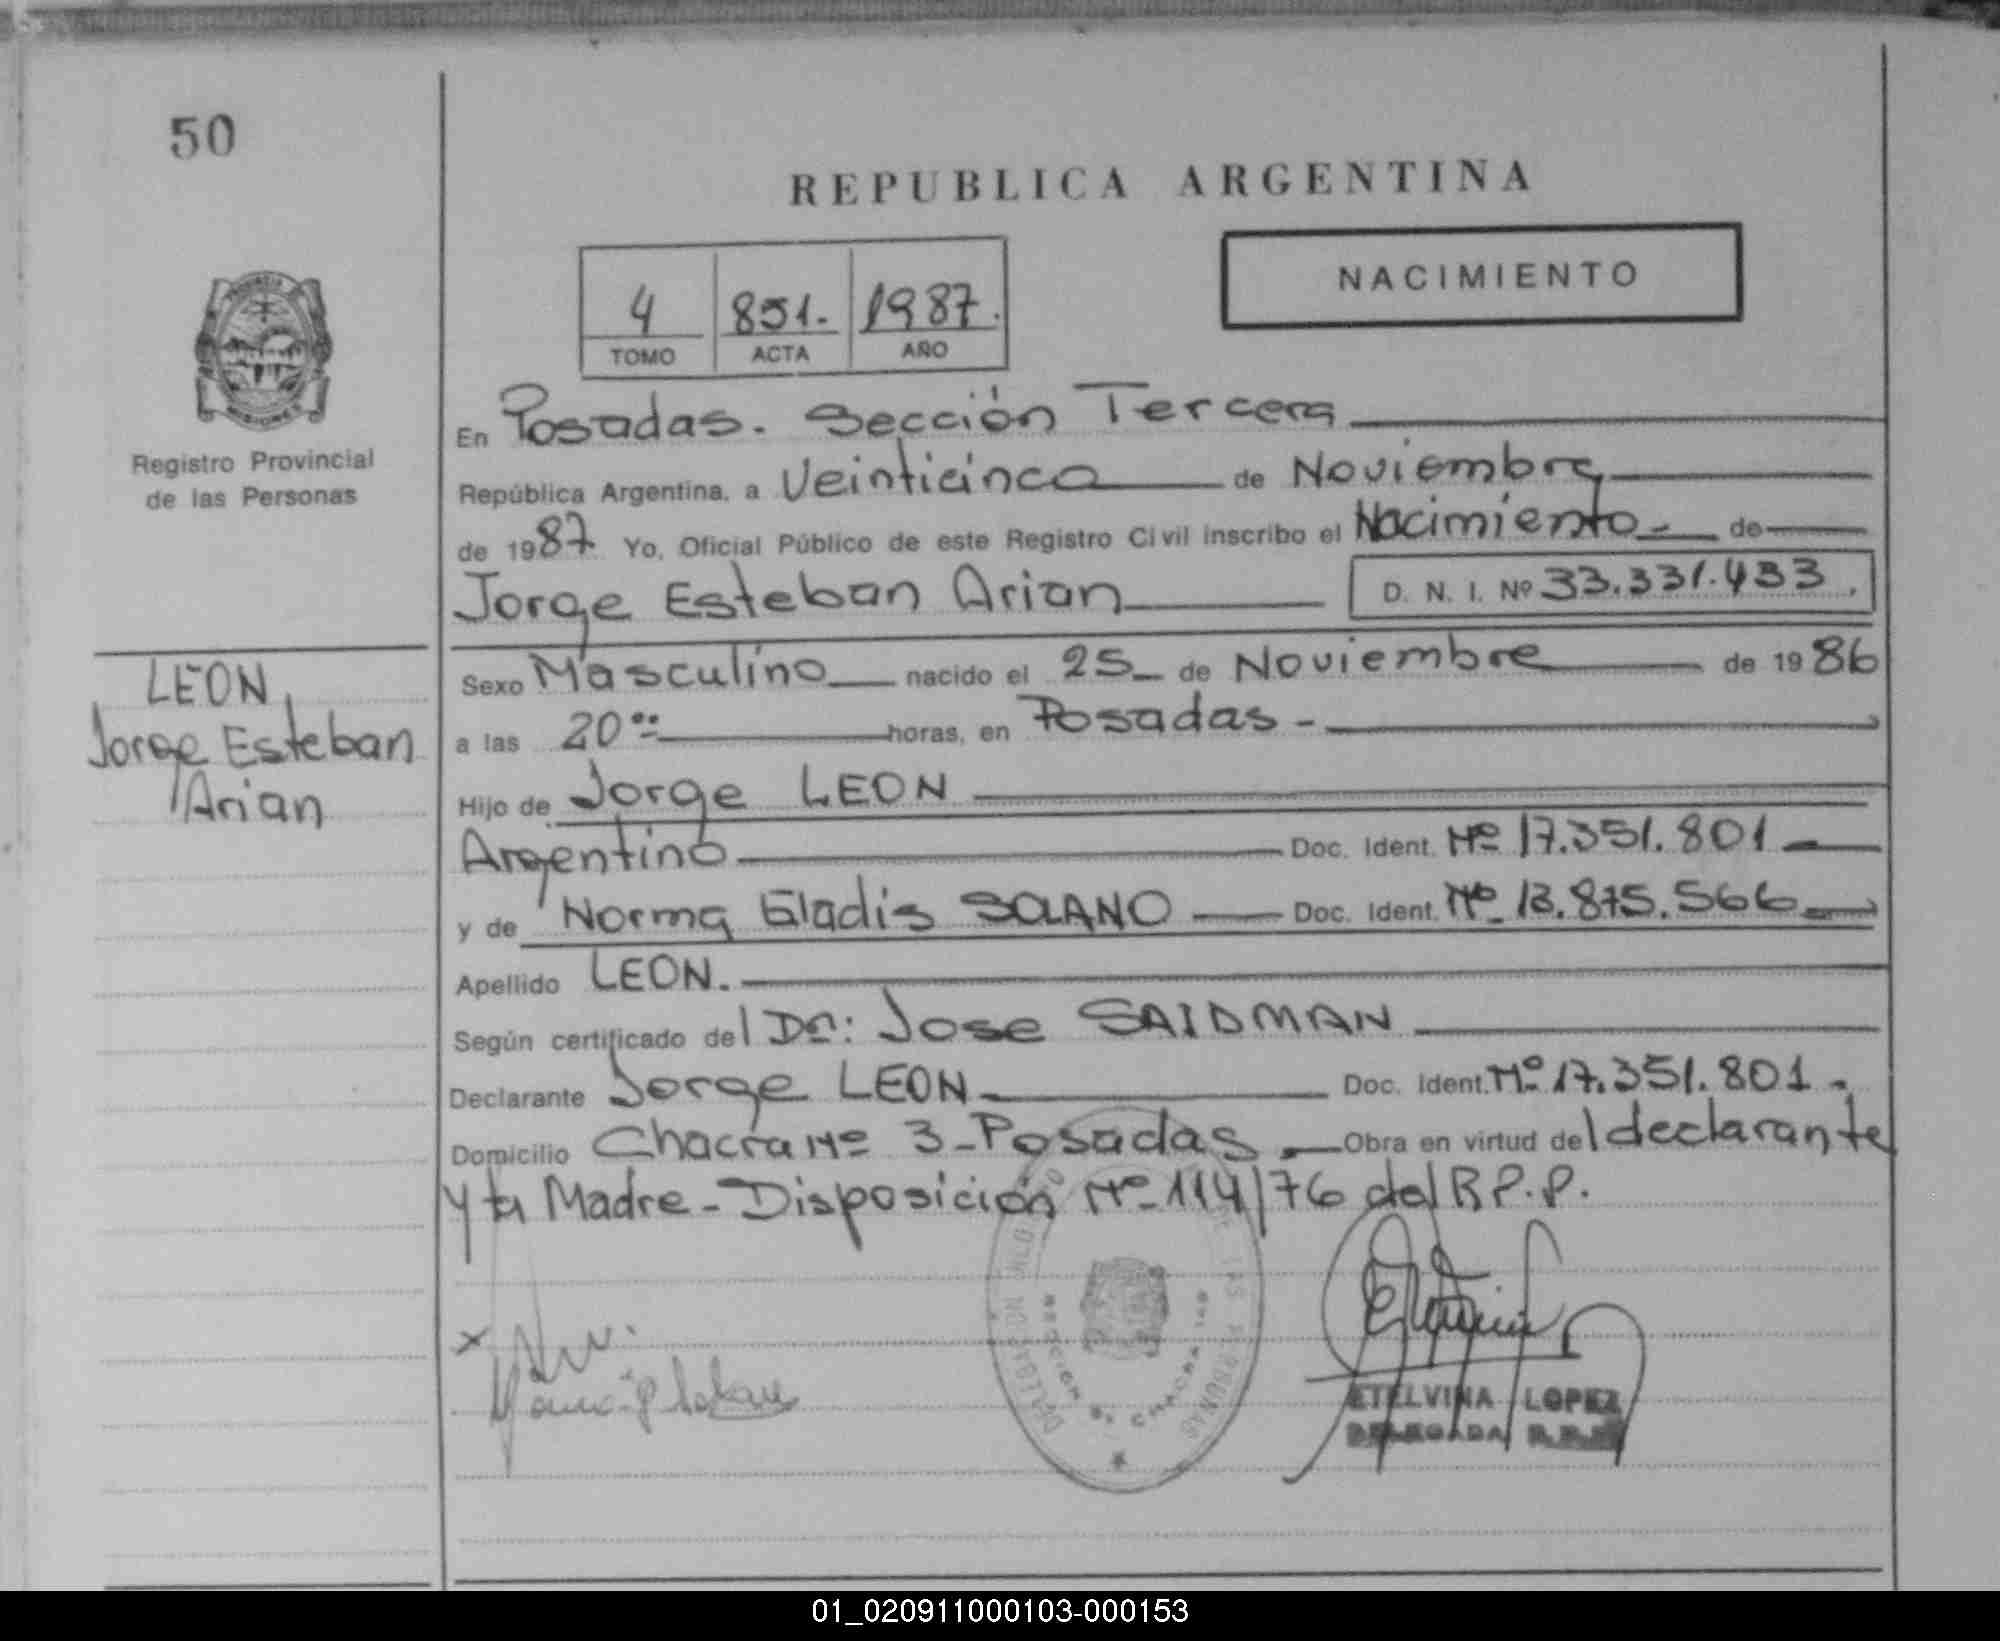 50
REPUBLICA ARGENTINA
NACIMIENTO
4 851. 1987.
TOMO ACTA AÑO
Registro Provincial
de las Personas
En Posadas. Sección Tercera
República Argentina, a Veinticinco de Noviembre
de 1987 Yo, Oficial Público de este Registro Civil inscribo el Nacimiento - de
Jorge Esteban Arian D. N. I. Nº 33.331.433.
LEON
Jorge Esteban
Arian
Sexo Masculino nacido el 25 de Noviembre de 1986
a las 20 00 horas, en Posadas -
Hijo de Jorge LEON
Argentino Doc. Ident. Nº 17.351.801
y de Norma Gladis SOLANO Doc. Ident. Nº 13.875.566
Apellido LEON.
Según certificado del Dr: Jose SAIDMAN
Declarante Jorge LEON Doc. Ident. Nº 17.351.801.
Domicilio Chacra Nº 3 - Posadas Obra en virtud del declarante
y la Madre - Disposición Nº 114/76 del R.P.P.
ETELVINA LOPEZ
DELEGADA
01_020911000103-000153